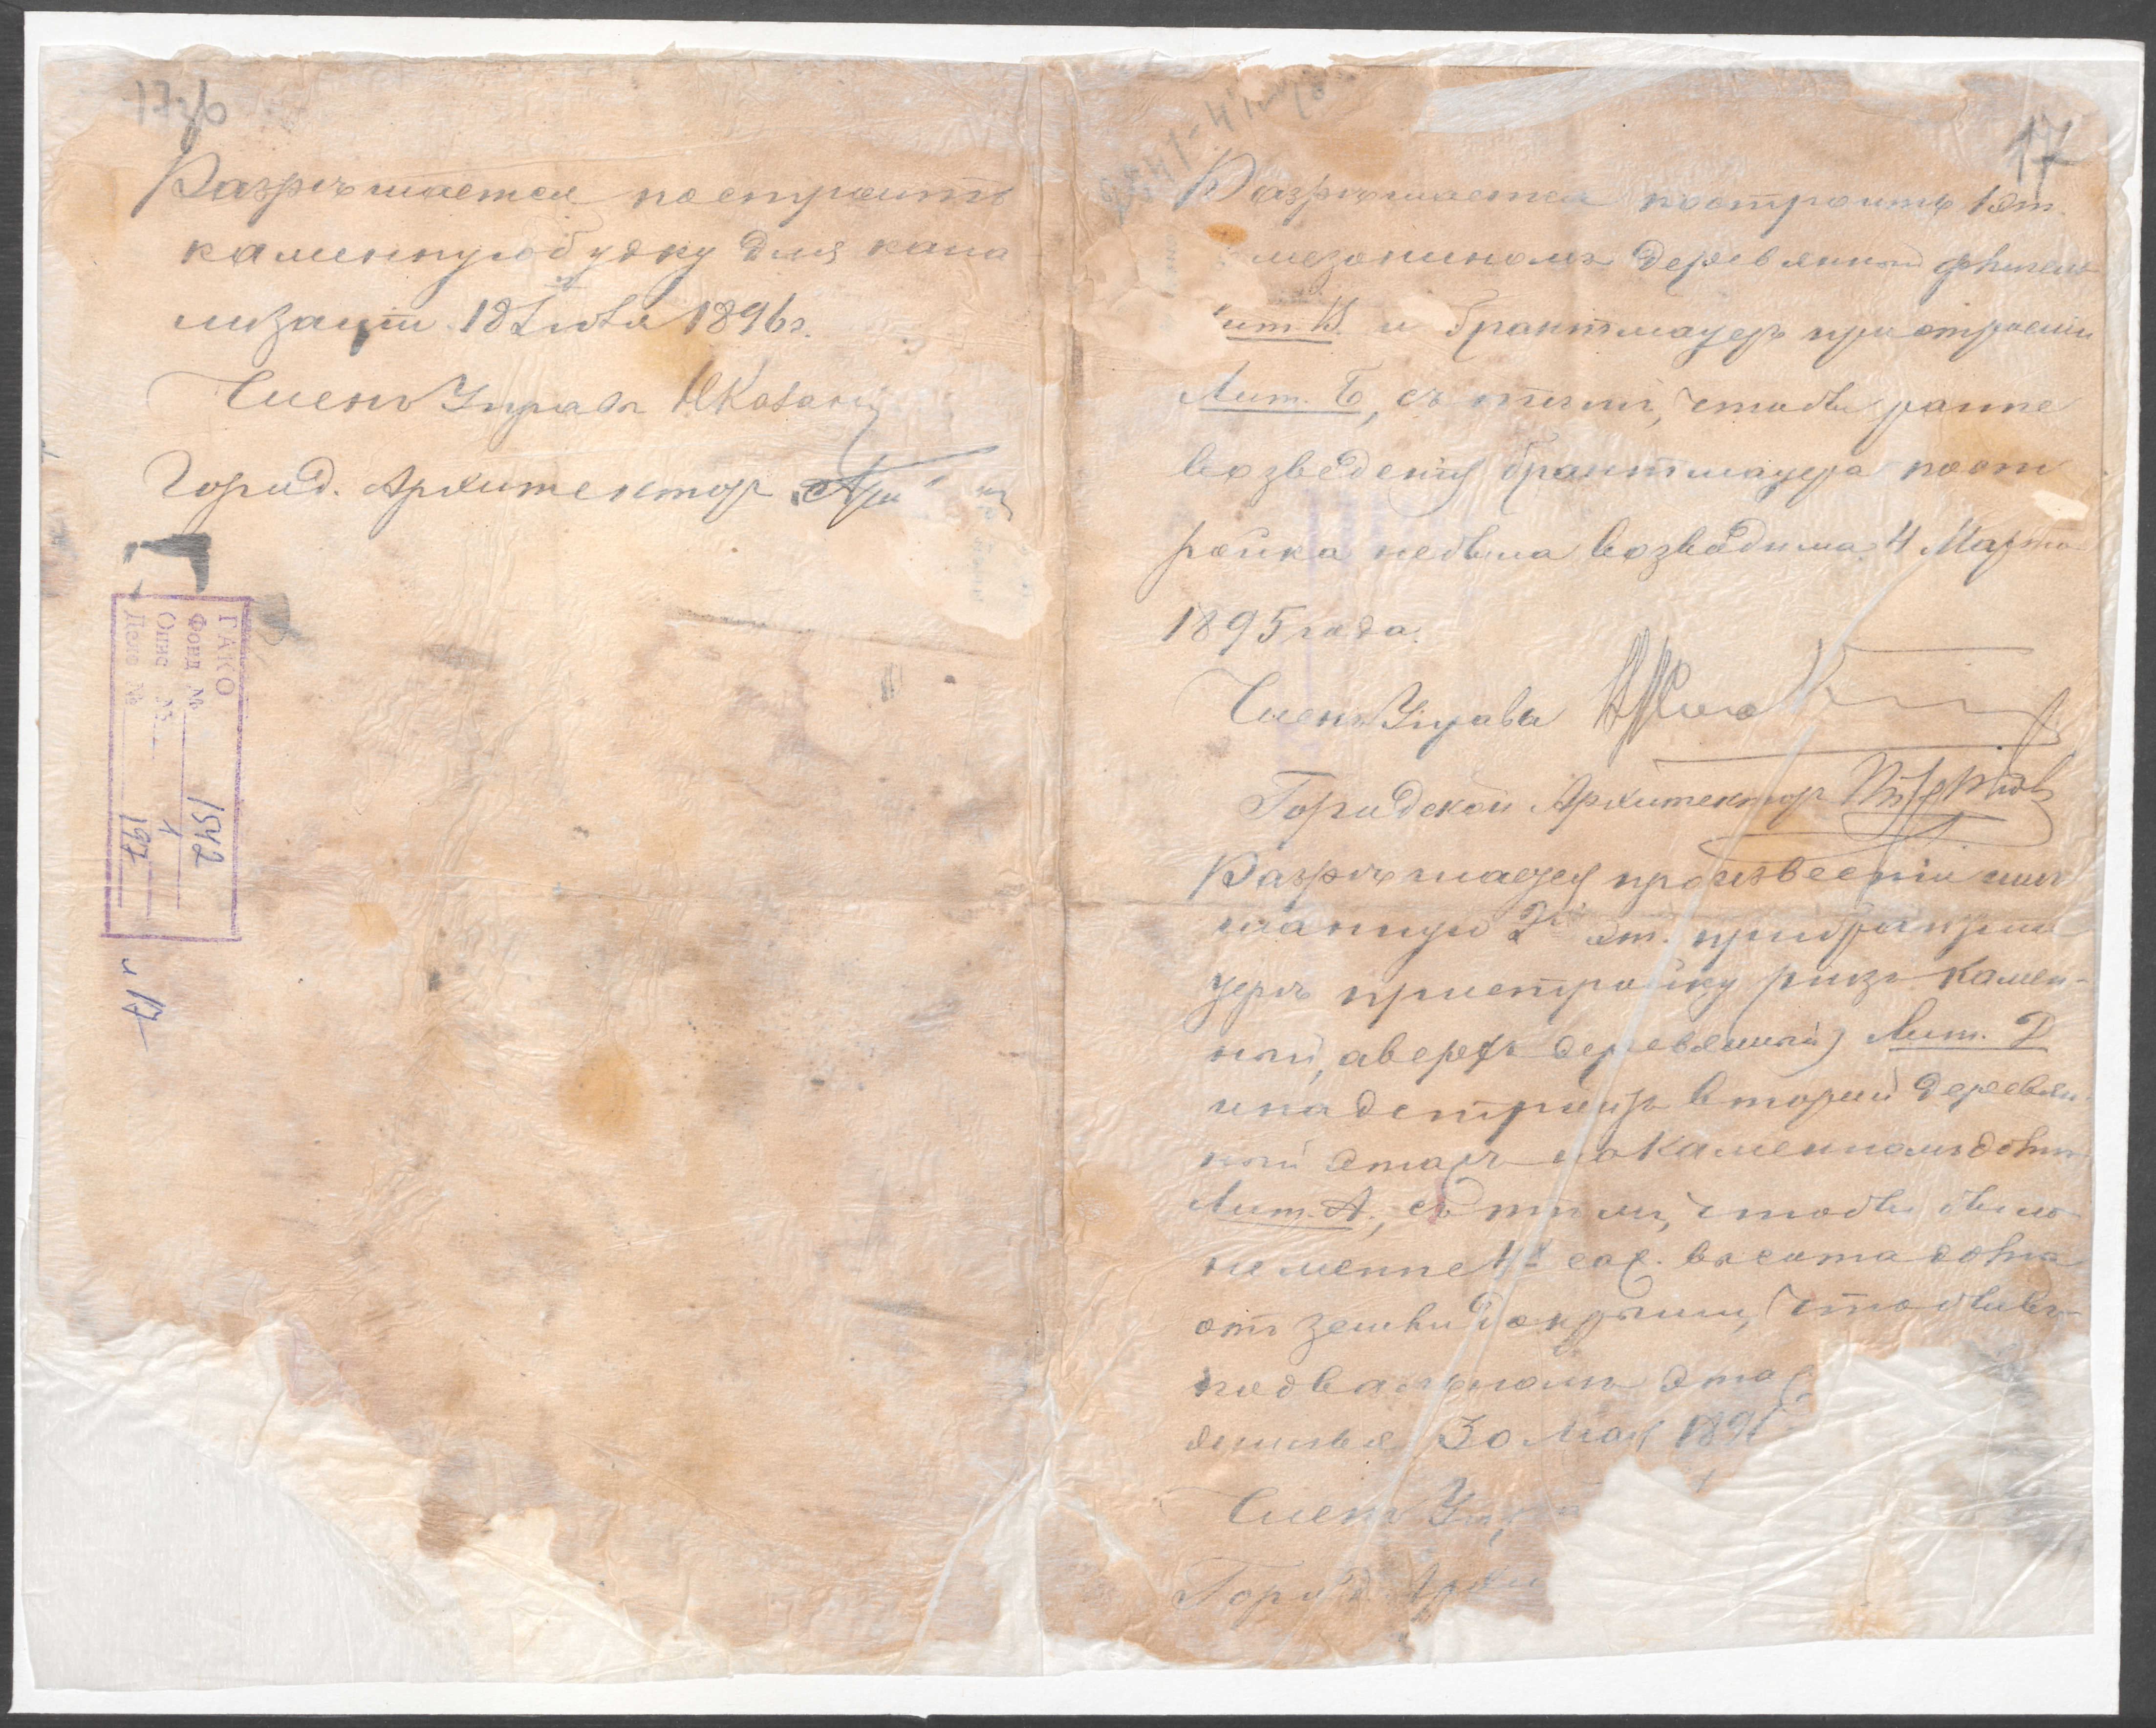 17об
Разрѣшается построить
каменную будку для кана
лизаціи 18 Іюля 1896 г.
Членъ Управы
Город. Архитекторъ
ГАКО
Фонд № 1542
Опис № 1
Дело № 197
л 17
17
Разрѣшается построить 1 эт.
мезониномъ деревянный флигель
Лит. В. и брантмауеръ при строеніи
Лит. Б, съ тѣмъ, чтобы ранѣе
возведенія брантмауера пост
ройка не была возводима 4 Марта
1895 года.
Членъ Управы
Городской Архитекторъ
Разрѣшается произвести
2х эт.
пристройку (низъ камен-
ный, а верхъ деревянный) Лит. Д
и надстроить второй деревян
ный этажъ на каменномъ домѣ
Лит. А., съ тѣмъ, чтобы было
не менѣе 4х саж. высота дома
отъ земли до крыши, чтобы въ
подвальномъ этаж
жилья 30 Мая 189
Членъ Упра
Город. Архи